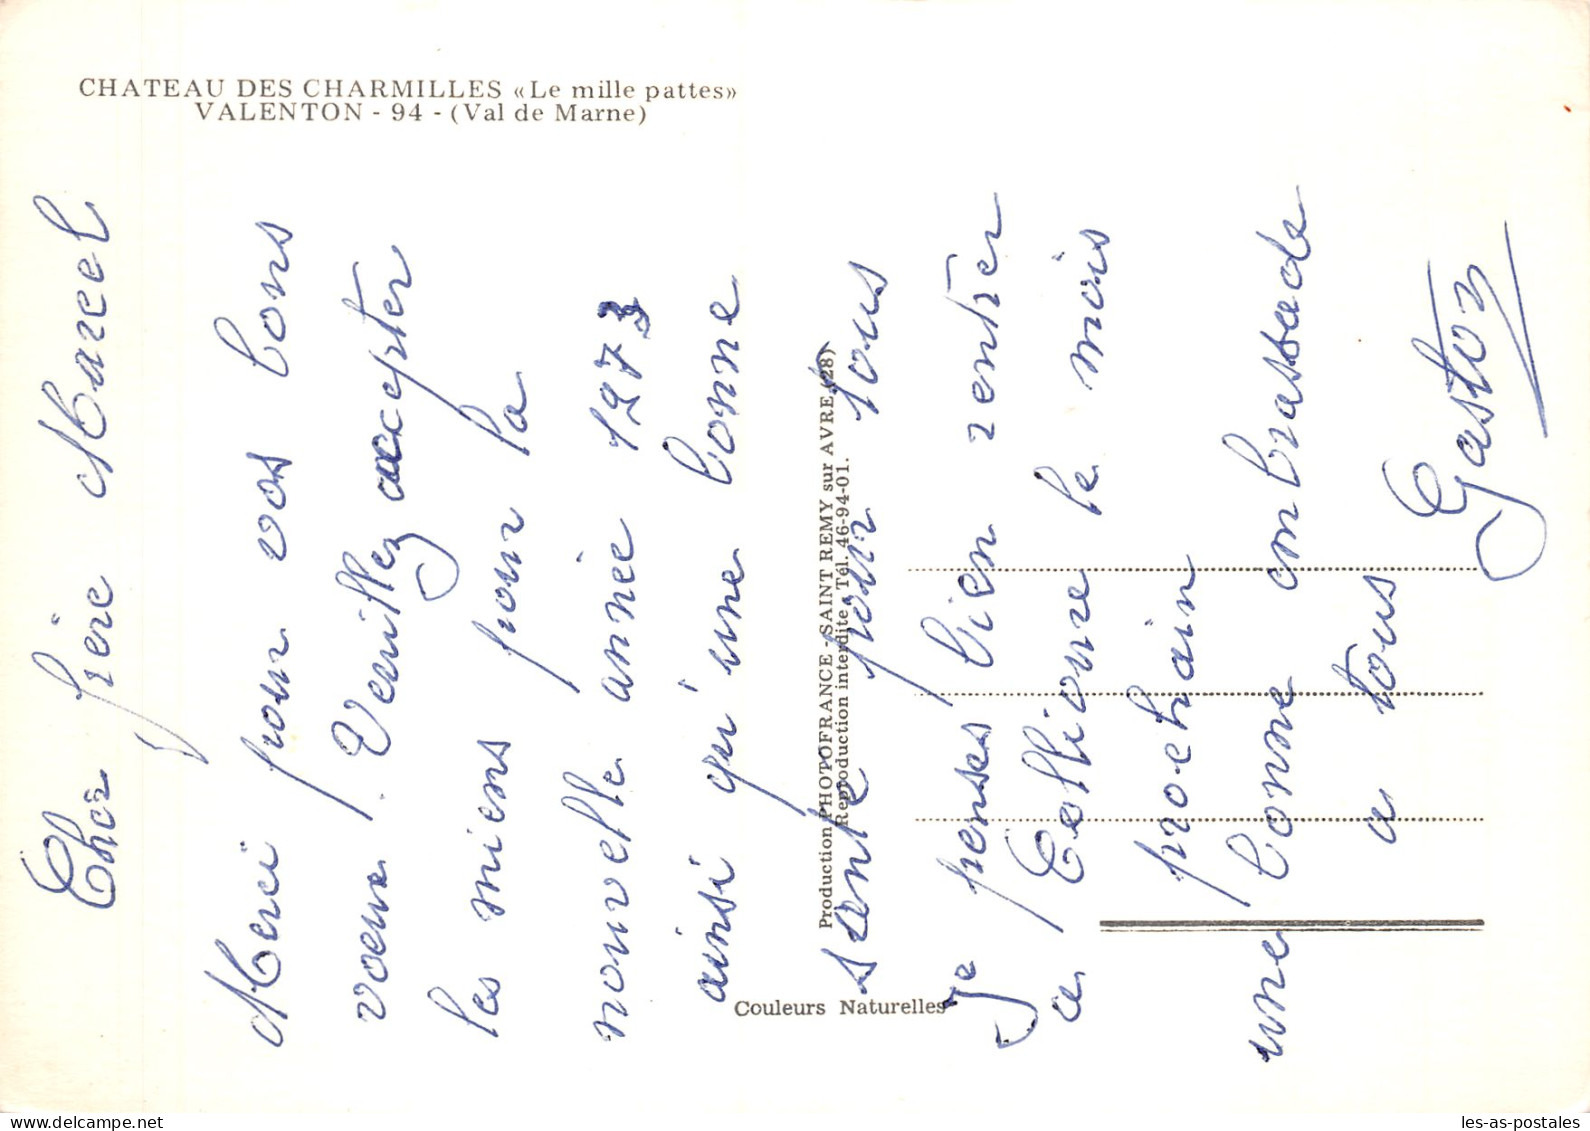 CHATEAU DES CHARMILLES «Le mille pattes»
VALENTON - 94 - (Val de Marne)
Cher frère Marcel
Merci pour vos bons
voeux. Veuillez accepter
les miens pour la
nouvelle année 1973
ainsi qu'une bonne
santé pour tous
Je penses bien rentrer
a Collioure le mois
prochain
une bonne embrassade
a tous
Gaston
Production PHOTOFRANCE - SAINT REMY sur AVRE (28)
Reproduction interdite Tél. 46-94-01.
Couleurs Naturelles
les-as-postales